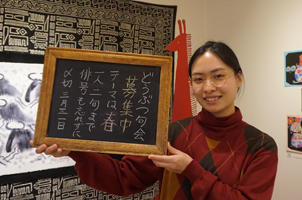 どうぶつ句会
募集中
テーマは春
一人二句まで
俳号も忘れずに
〆切三月三一日